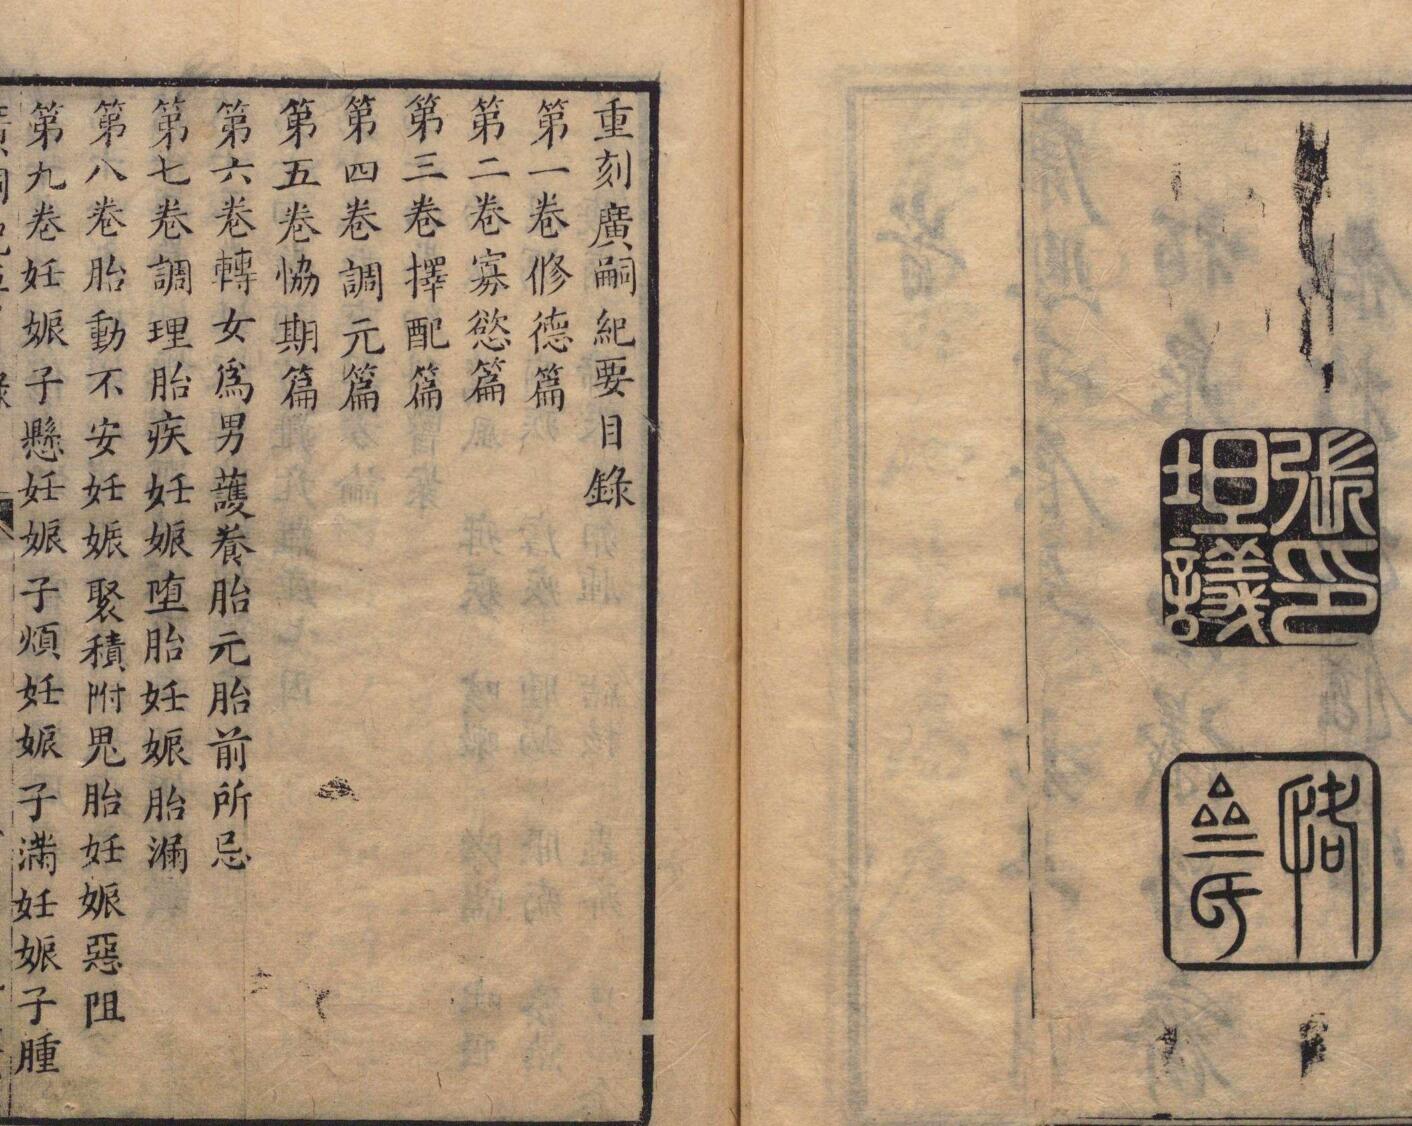 張坦議印
重刻廣嗣紀要目錄
第一卷修德篇
第二卷寡慾篇
第三卷擇配篇
第四卷調元篇
第五卷恊期篇
第六卷轉女爲男護養胎元胎前所忌
第七卷調理胎疾妊娠堕胎妊娠胎漏
第八卷胎動不安妊娠聚積附鬼胎妊娠惡阻
第九卷妊娠子懸妊娠子煩妊娠子滿妊娠子腫